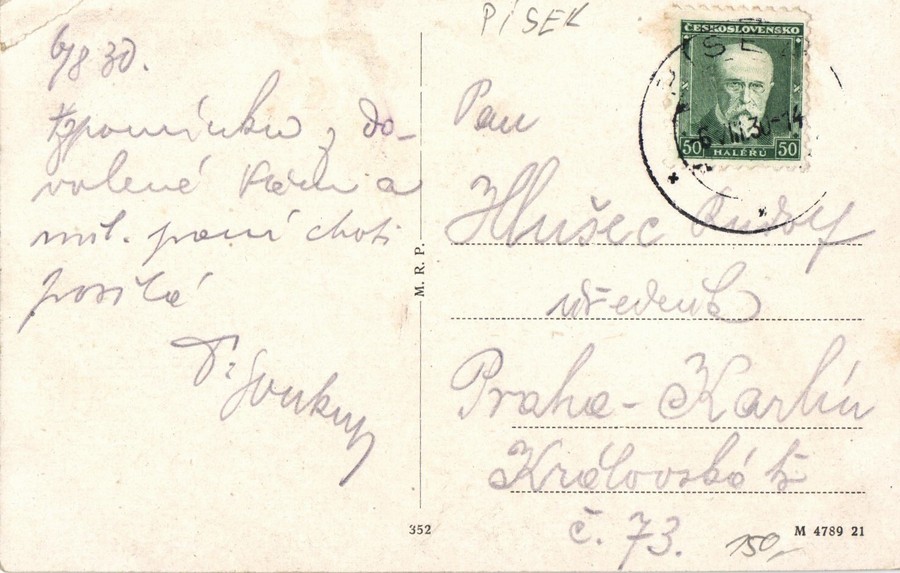 PÍSEK
6/8 30.
Vzpomínku z do-
volené Vám a
mil. paní choti
posílá
Soukup
M. R. P.
352
ČESKOSLOVENSKO
50 HALÉŘŮ 50
PÍSE
6.VIII.30-14
Pan
Hlušec Rudolf
úředník
Praha - Karlín
Královská tř
č. 73.
150,-
M 4789 21